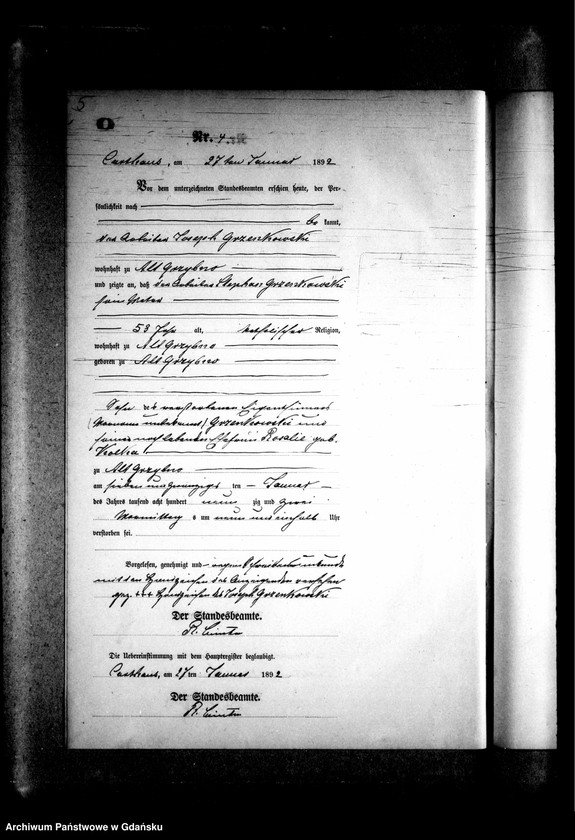 5
Nr. 4.
Carthaus, am 27ten Januar 1892
Vor dem unterzeichneten Standesbeamten erschien heute, der Per-
sönlichkeit nach
be kannt,
der Arbeiter Joseph Grzenkowski
wohnhaft zu Alt Grzybno
und zeigte an, daß der Arbeiter Stephan Grzenkowski
sein Vater
53 Jahr alt, katholischer Religion,
wohnhaft zu Alt Grzybno
geboren zu Alt Grzybno
Sohn des verstorbenen Eigenthümers
(Vorname unbekannt) Grzenkowski und
seiner noch lebenden Ehefrau Rosalie geb.
zu Alt Grzybno
am sieben und zwanzigs ten Januar
des Jahres tausend acht hundert neun zig und zwei
Vormittags um neun und einhalb Uhr
verstorben sei.
Vorgelesen, genehmigt und wegen Schreibens unkunde
mit den Handzeichen des Anzeigenden versehen
gez. +++ Handzeichen des Joseph Grzenkowski
Der Standesbeamte.
Die Uebereinstimmung mit dem Hauptregister beglaubigt.
Carthaus, am 27 ten Januar 1892
Der Standesbeamte.
Archiwum Państwowe w Gdańsku